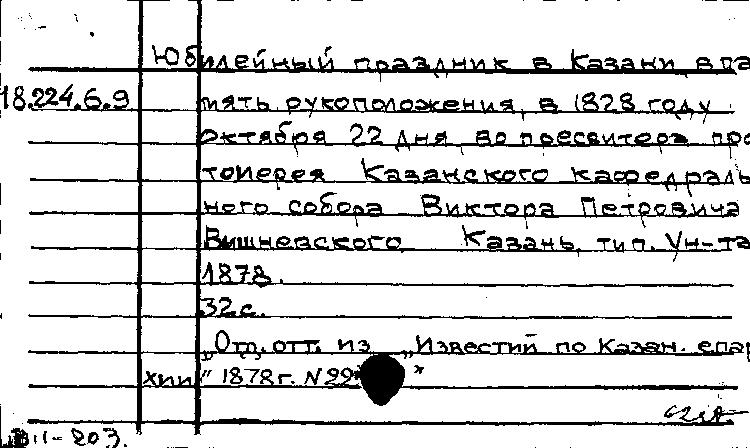 Юбилейный праздник в Казани в па
18.224.6.9 мять рукоположения, в 1828 году
октября 22 дня, во пресвитера про
тоиерея Казанского кафедраль
ного собора Виктора Петровича
Вишневского. Казань, тип. Ун-та
1878.
32с.
„Отд. отт. из „Известий по Казан. епар
хии" 1878г. N 22"
VIII-203.